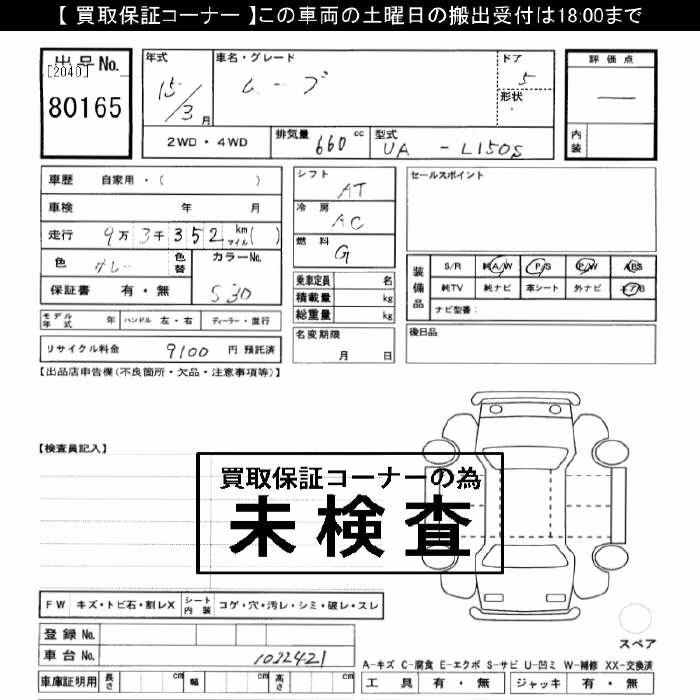 【 買取保証コーナー 】この車両の土曜日の搬出受付は18:00まで
出品No.
[2040]
80165
年式
15/3月
車名・グレード
ムーブ
ドア
5
形状
評価点
—
内装
2WD・4WD
排気量 660 cc
型式 UA - L150S
車歴 自家用・( )
車検 年 月
走行 9万3千352 km マイル ( )
色 グレー
色替
カラーNo.
S30
保証書 有・無
モデル年式 年 ハンドル 左・右 ディーラー・並行
リサイクル料金 9100 円 預託済
シフト AT
冷房 AC
燃料 G
乗車定員 名
積載量 kg
総重量 kg
名変期限
月 日
セールスポイント
装備品
S/R 純A/W P/S P/W ABS
純TV 純ナビ 革シート 外ナビ エアB
ナビ型番:
後日品
【出品店申告欄(不良箇所・欠品・注意事項等)】
【検査員記入】
買取保証コーナーの為
未検査
FW キズ・トビ石・割レX シート内装 コゲ・穴・汚レ・シミ・破レ・スレ
登録 No.
車台 No. 1032421
車庫証明用 長さ cm 幅 cm 高さ cm
スペア
A-キズ C-腐食 E-エクボ S-サビ U-凹ミ W-補修 XX-交換済
工具 有・無 ジャッキ 有・無